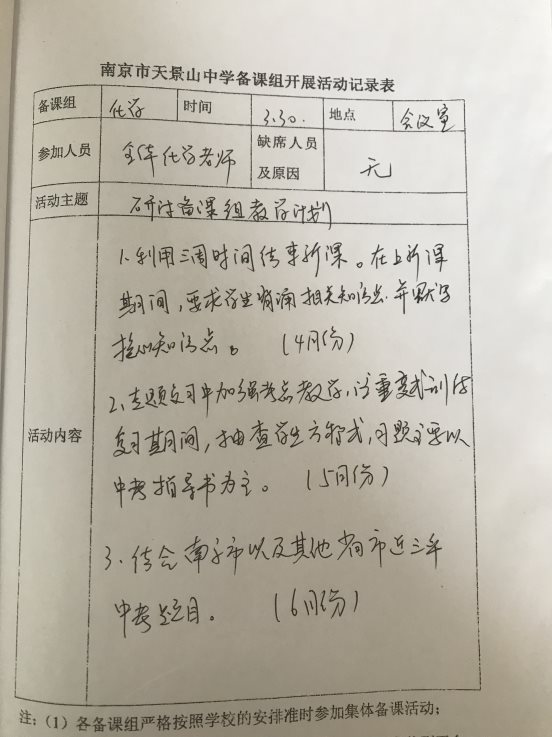 南京市天景山中学备课组开展活动记录表
备课组 化学 时间 3.30. 地点 会议室
参加人员 全体化学老师 缺席人员及原因 无
活动主题 研讨备课组教学计划
活动内容
1、利用三周时间结束新课。在上新课
期间，要求学生背诵相关知识点.并默写
核心知识点。 （4月份）
2、专题复习中加强考点教学，注重变式训练
复习期间，抽查学生方程式，习题主要以
中考指导书为主。 （5月份）
3、结合南京市以及其他省市近三年
中考题目。 （6月份）
注：（1）各备课组严格按照学校的安排准时参加集体备课活动；